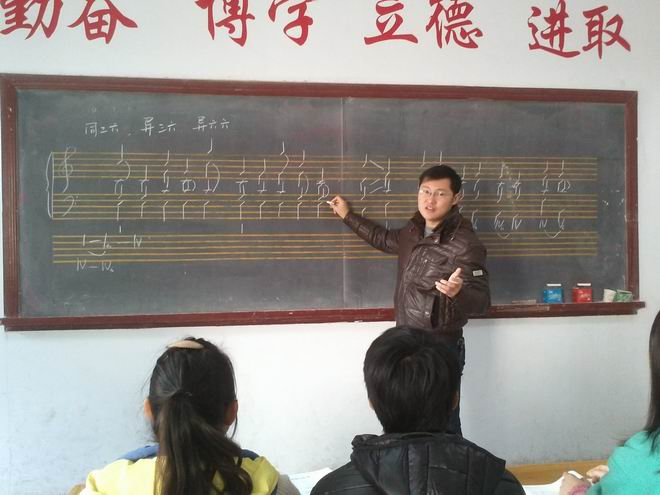 勤奋 博学 立德 进取
同三六、异三六、异六六
IV — IV₆